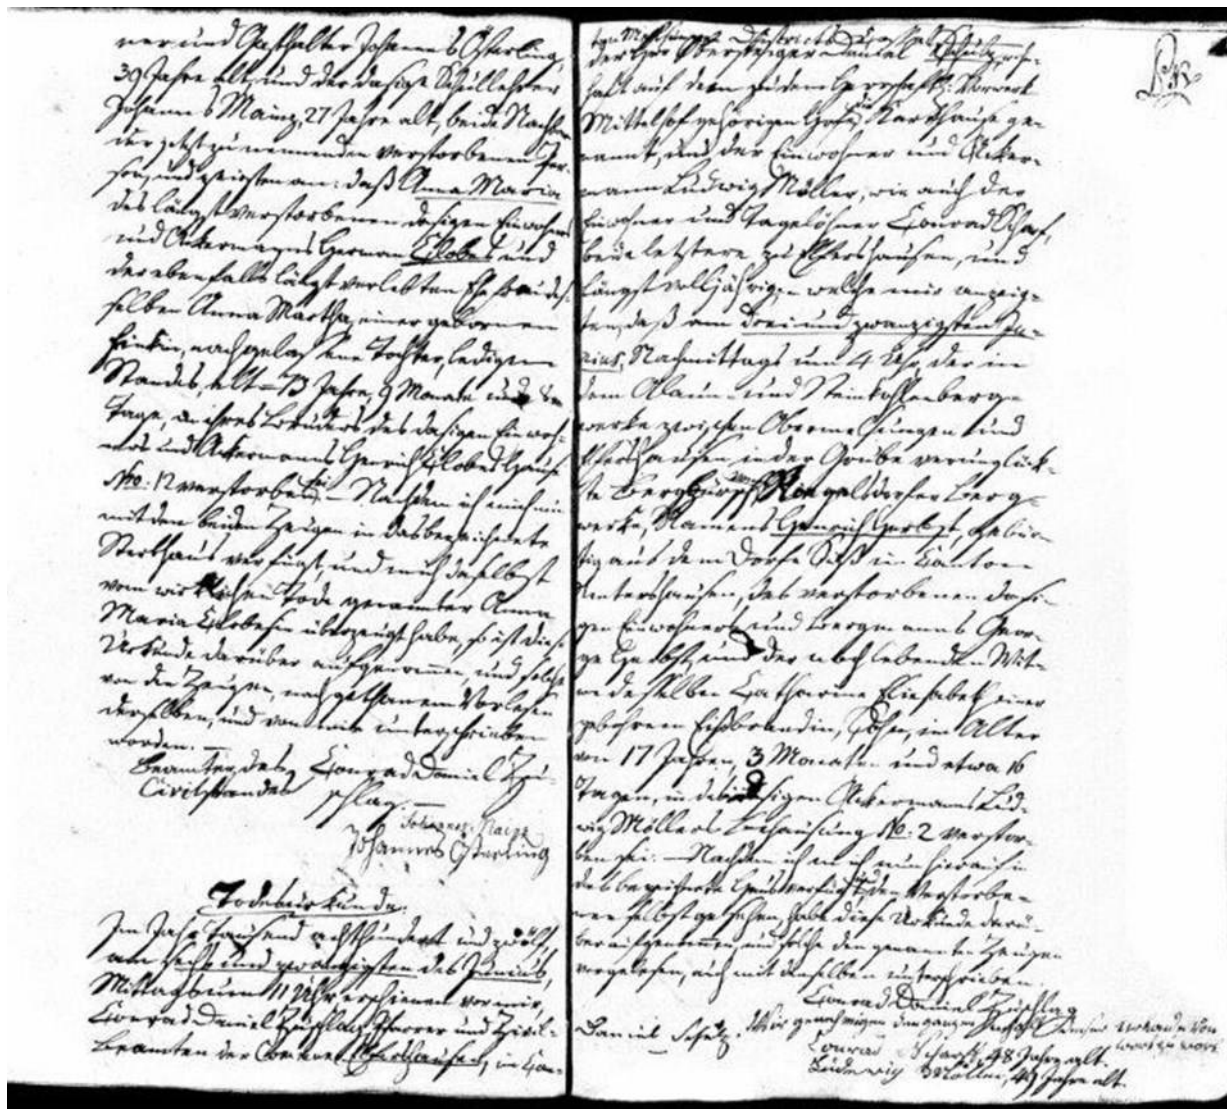 ner und Gasthalter Johannes Österling,
39 Jahre alt, und der dasige Schullehrer
Johannes Mainz, 27 Jahre alt, beide Nachbarn
der jetzt zu nennenden verstorbenen Per-
son, und zeigten an: daß Anna Maria
des längst verstorbenen dasigen Einwohners
und Ackermanns Herman Clobes und
der ebenfalls längst verlebten Ehefrau des-
selben Anna Martha, einer gebornen
nachgelassene Tochter, ledigen
Standes, alt 73 Jahre, 9 Monate und
Tage, in ihres Bruders des dasigen Einwoh-
ners und Ackermanns Henrich Clobes Hause
No: 12 verstorben sei. – Nachdem ich mich nun
mit den beiden Zeugen in das bezeichnete
Sterbhaus verfügt, und mich daselbst
vom wirklichen Tode genannter Anna
Maria Clobesin überzeugt habe, so ist diese
Urkunde darüber aufgenommen, und solche
von den Zeugen, nach gethanem Vorlesen
derselben, und von mir unterschrieben
worden. –
Beamter des Conrad Daniel Zu-
Civilstandes schlag. –
Johannes Mainz
Johannes Österling
Todesurkunde.
Im Jahr tausend achthundert und zwölf,
am sechs und zwanzigsten des Junius,
Mittags um 11 Uhr erschienen vor mir,
Conrad Daniel Zuschlag Pfarrer und Civil-
Beamten der Comune Elfershausen, im Can-
ton Melsungen, Districts
der Herr Obersteiger Daniel Schülz, wohn-
haft auf dem zu dem Herrschaftl. Vorwerk
Mittelhof gehörigen Hofe, Karthause ge-
nannt, und der Einwohner und Acker-
mann Ludwig Möller, wie auch der
Einwohner und Tagelöhner Conrad Scharf,
beide letztere zu Elfershausen, und
längst volljährig, welche mir anzeig-
ten, daß am drei und zwanzigsten Ju-
nius, Nachmittags um 4 Uhr, der in
dem Alaun- und Steinkohlenberg-
werke zwischen Obermelsungen und
Elfershausen, in der Grube verunglück-
te Bergbursch, vom Ringelsdorfer Berg-
werke, Namens Henrich Herbst, gebür-
tig aus dem Dorfe Süß im Canton
Nentershausen, des verstorbenen dasi-
gen Einwohners und Bergmanns Geor-
ge Herbst und der noch lebenden Wit-
we desselben Catharine Eliesabeth einer
gebohrnen Sohn, im Alter
von 17 Jahren, 3 Monaten und etwa 16
Tagen, in des hiesigen Ackermanns Lud-
wig Möllers Behausung No: 2 verstor-
ben sei. – Nachdem ich mich nun hierauf in
das bezeichnete Haus verfügt, und den Verstorbe-
nen selbst gesehen, habe diese Urkunde darü-
ber aufgenommen, und solche den genannten Zeugen
vorgelesen, auch mit denselben unterschrieben.
Conrad Daniel Zuschlag
Daniel Schülz. Wir genehmigen den ganzen Inhalt dieser Urkunde von
Wort zu Wort
Conrad Scharf, 48 Jahre alt.
Ludewig Möller, 49 Jahre alt.